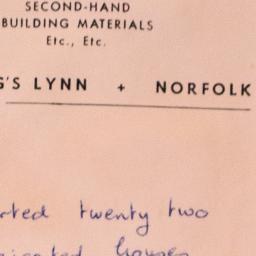 SECOND-HAND
BUILDING MATERIALS
Etc., Etc.
G'S LYNN + NORFOLK
rted twenty two
houses